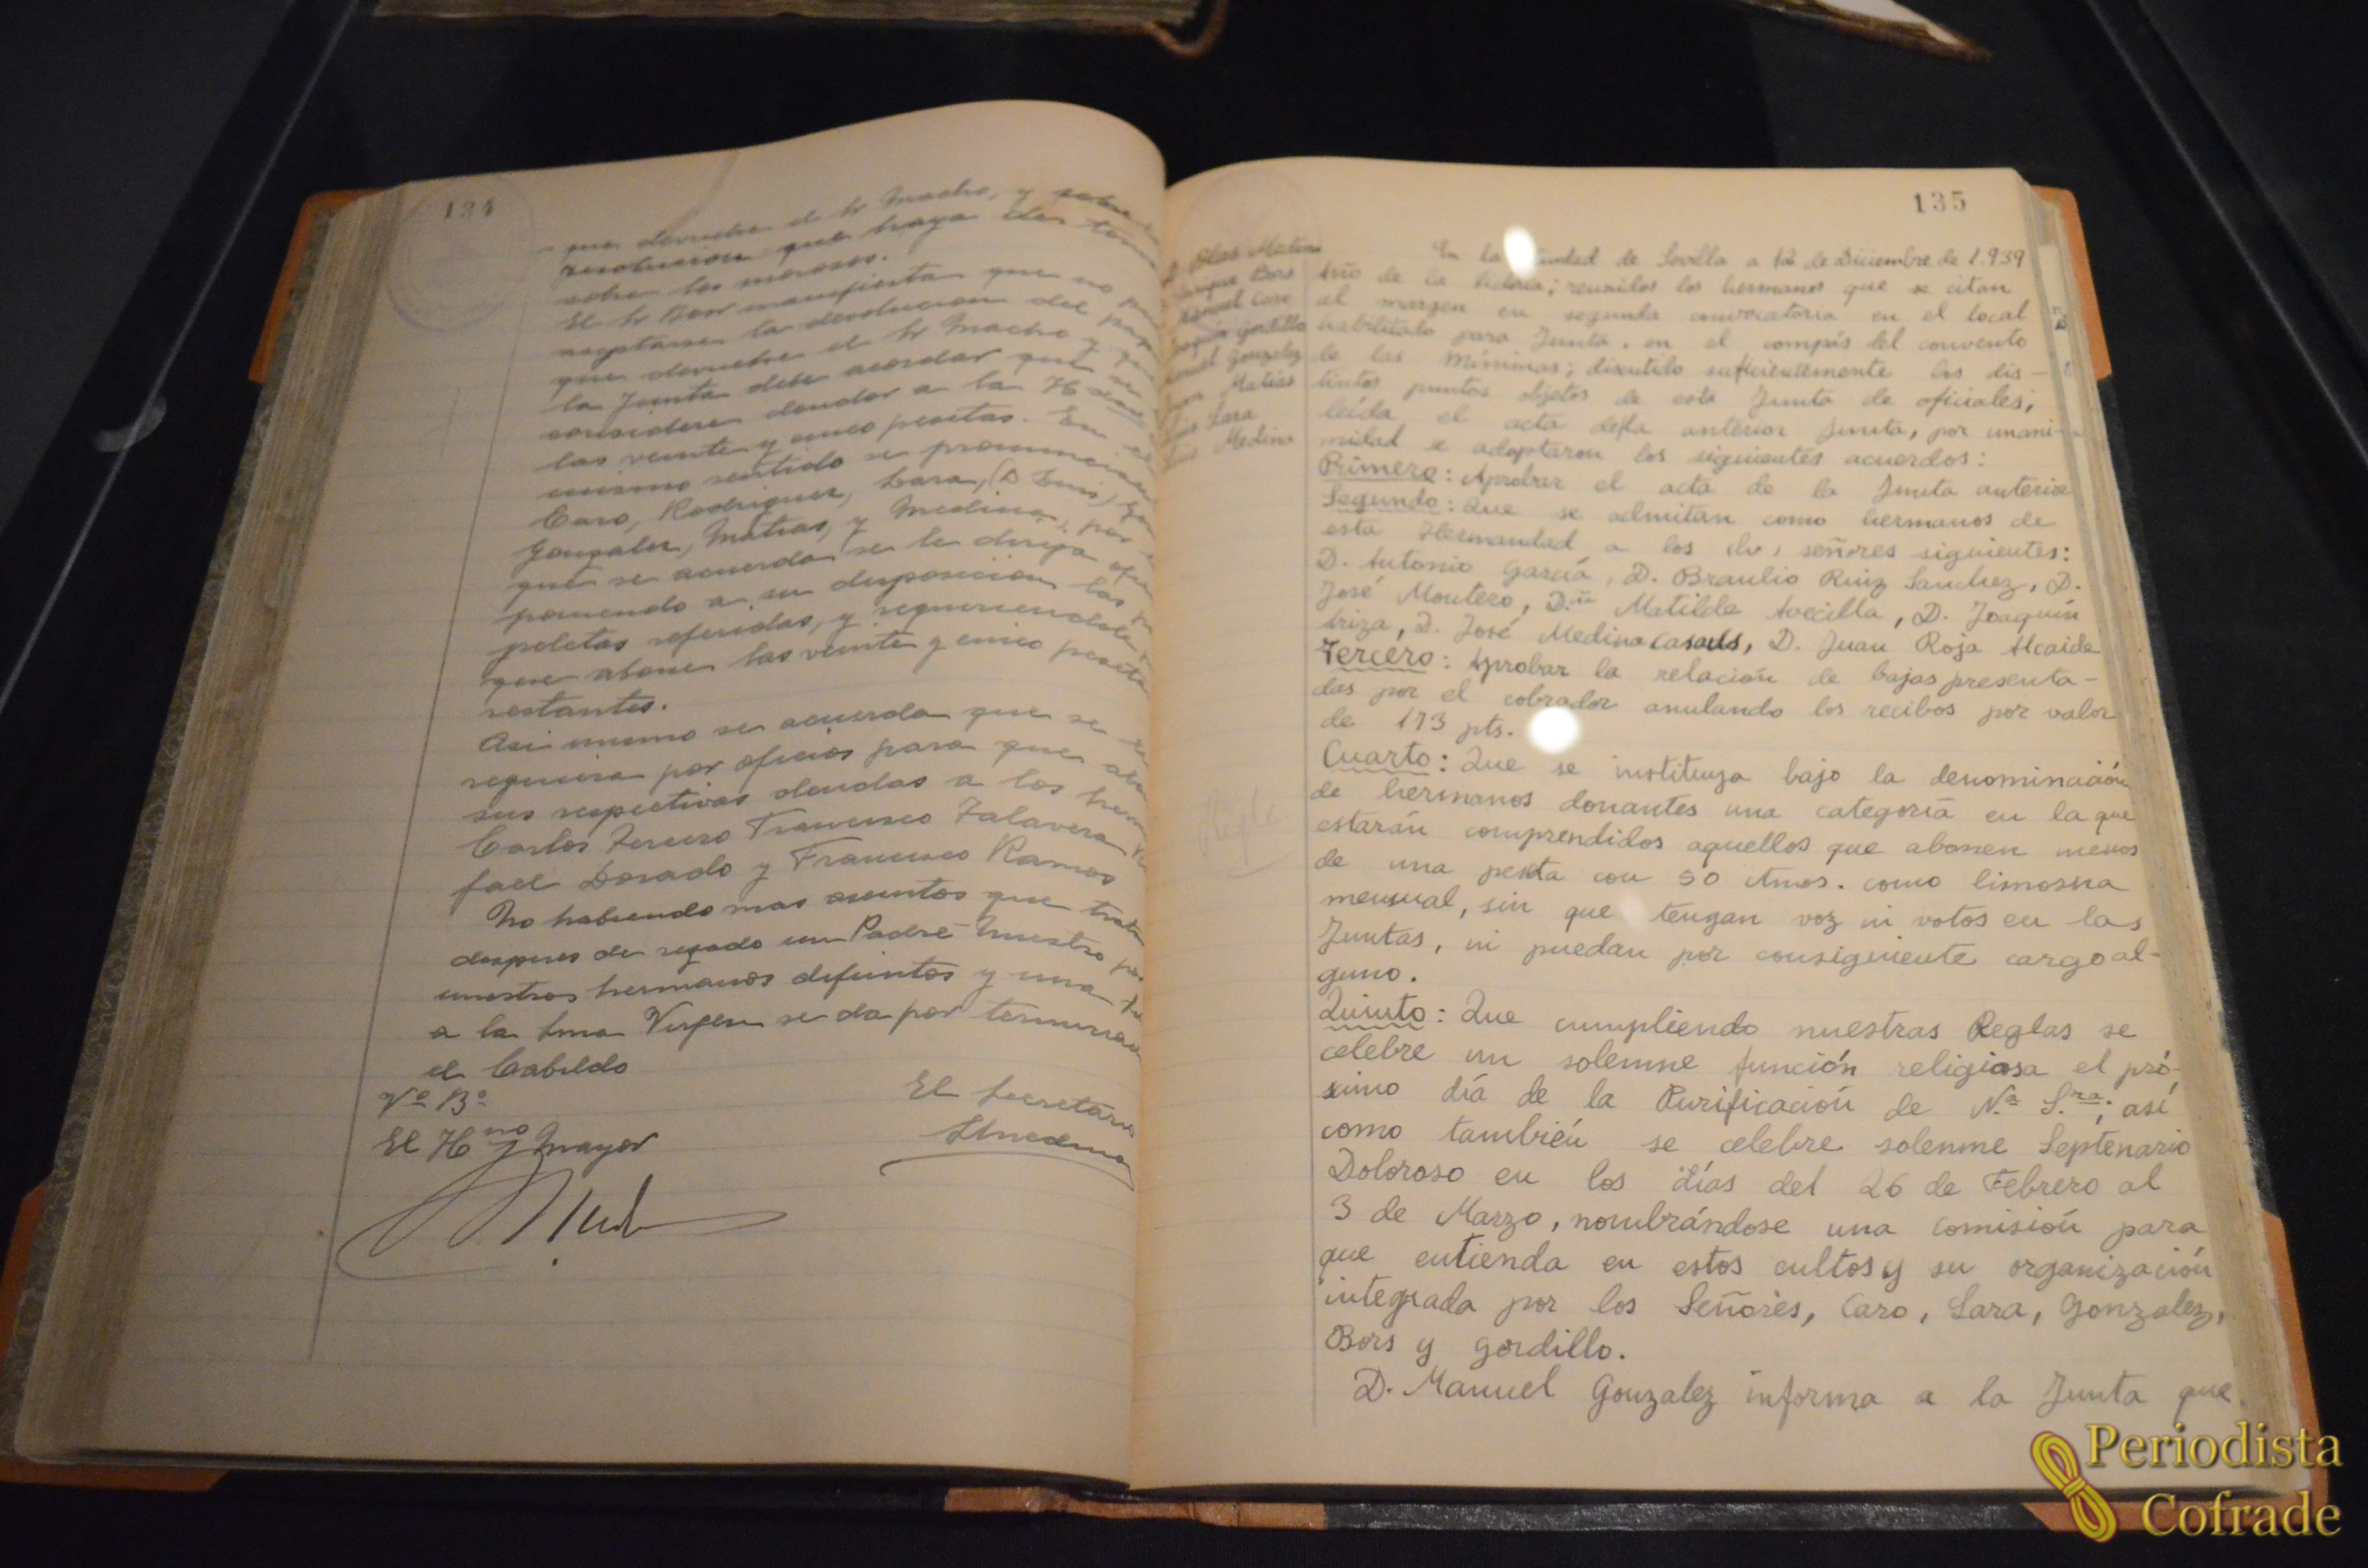 134
que devuelve el Sr Macho, y sobre
resolucion que haya de
sobre los morosos.
El Sr Bors manifiesta que no
aceptarse la devolucion del
que devuelve el Sr Macho y
la Junta debe acordar que se
considere deudor a la
las veinte y cinco pesetas. En el
mismo sentido se pronuncian
Caro, Rodriguez, Lara, (D Luis)
Gonzalez, Matias, y Medina, por
que se acuerda se le dirija
poniendo a su disposicion las
peletas referidas, y requiriendole
que abone las veinte y cinco peseta
restantes.
Asi mismo se acuerda que se
requiera por oficios para que
sus respectivas deudas a los
Carlos Tercero Francisco Talavera
fael Dorado y Francisco Ramos
No habiendo mas asuntos que
despues de rezado un Padre Nuestro
nuestros hermanos difuntos y una
a la Sma Virgen se da por
el Cabildo
Vº Bº
El Hno Mayor
El Secretario
135
Blas Matias
Enrique Bors
Manuel Caro
Joaquin Gordillo
Manuel Gonzalez
Juan Matias
Luis Lara
Luis Medina
En la ciudad de Sevilla a 12 de Diciembre de 1.939
Año de la Victoria; reunidos los hermanos que se citan
al margen en segunda convocatoria en el local
habilitado para Junta, en el compás del convento
de las Mínimas; discutido suficientemente los dis-
tintos puntos objetos de esta Junta de oficiales;
leída el acta de la anterior Junta, por unani-
midad se adoptaron los siguientes acuerdos:
Primero: Aprobar el acta de la Junta anterior
Segundo: Que se admitan como hermanos de
esta Hermandad a los señores siguientes:
D. Antonio García, D. Braulio Ruiz Sanchez, D.
José Montero, D.ª Matilde Avecilla, D. Joaquín
Ariza, D. José Medina Casaus, D. Juan Roja Alcaide
Tercero: Aprobar la relación de bajas presenta-
das por el cobrador anulando los recibos por valor
de 173 pts.
Cuarto: Que se instituya bajo la denominación
de hermanos donantes una categoría en la que
estarán comprendidos aquellos que abonen menos
de una peseta con 50 ctmos. como limosna
mensual, sin que tengan voz ni votos en las
Juntas, ni puedan por consiguiente cargo al-
guno.
Quinto: Que cumpliendo nuestras Reglas se
celebre un solemne función religiosa el pró-
ximo día de la Purificación de N.ª S.ra; así
como también se celebre solemne Septenario
Doloroso en los días del 26 de Febrero al
3 de Marzo, nombrándose una comisión para
que entienda en estos cultos y su organización
integrada por los Señores, Caro, Lara, Gonzalez,
Bors y Gordillo.
D. Manuel Gonzalez informa a la Junta que
Periodista
Cofrade